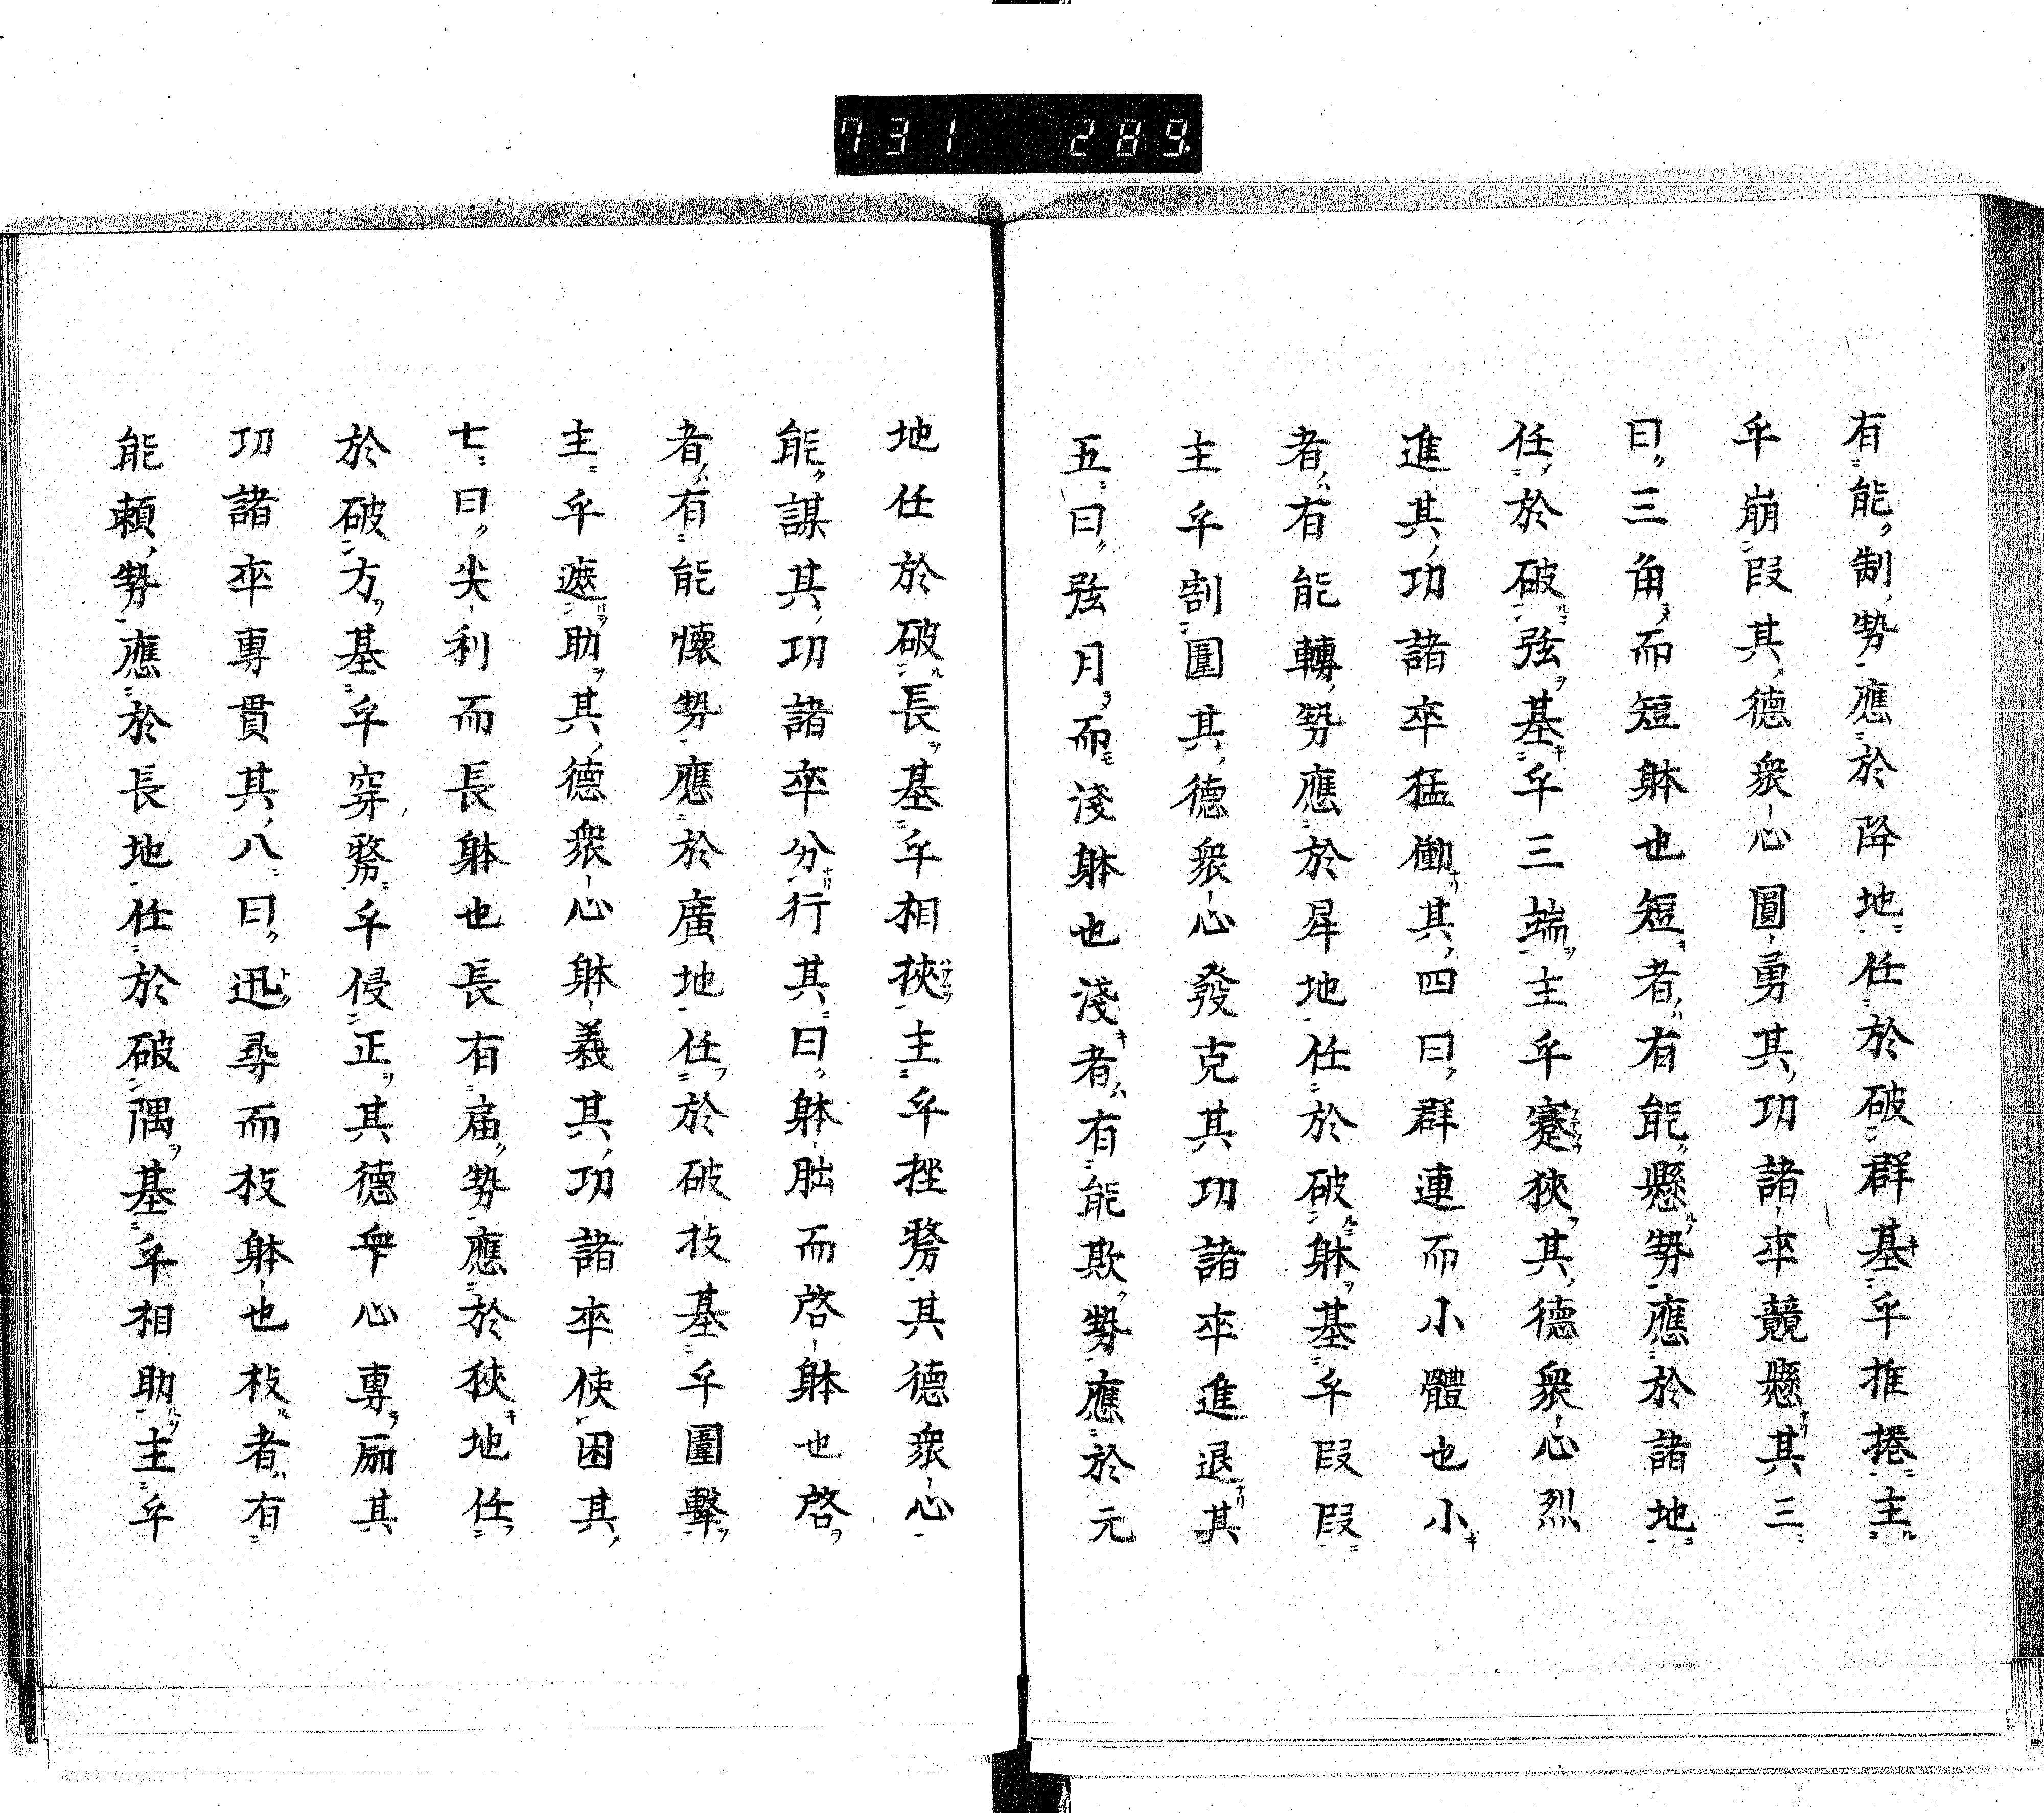 731 289.
有能制勢應於降地任於破群基乎推捲主
乎崩段其德衆心圓勇其功諸卒競懸其三
曰三角而短躰也短者有能懸勢應於諸地
任於破弦基乎三端主乎蹇狹其德衆心烈
進其功諸卒猛働其四曰群連而小體也小
者有能轉勢應於岸地任於破躰基乎段段
主乎割圍其德衆心發克其功諸卒進退其
五曰弦月而淺躰也淺者有能欺勢應於元
地任於破長基乎相挾主乎挫務其德衆心
能謀其功諸卒分行其曰躰朏而啓躰也啓
者有能懷勢應於廣地任於破技基乎圍擊
主乎遮助其德衆心躰義其功諸卒使困其
七曰尖利而長躰也長有庙勢應於狹地任
於破方基乎穿務乎侵正其德衆心專丽其
功諸卒專貫其八曰迅尋而枝躰也枝者有
能頼勢應於長地任於破隅基乎相助主乎